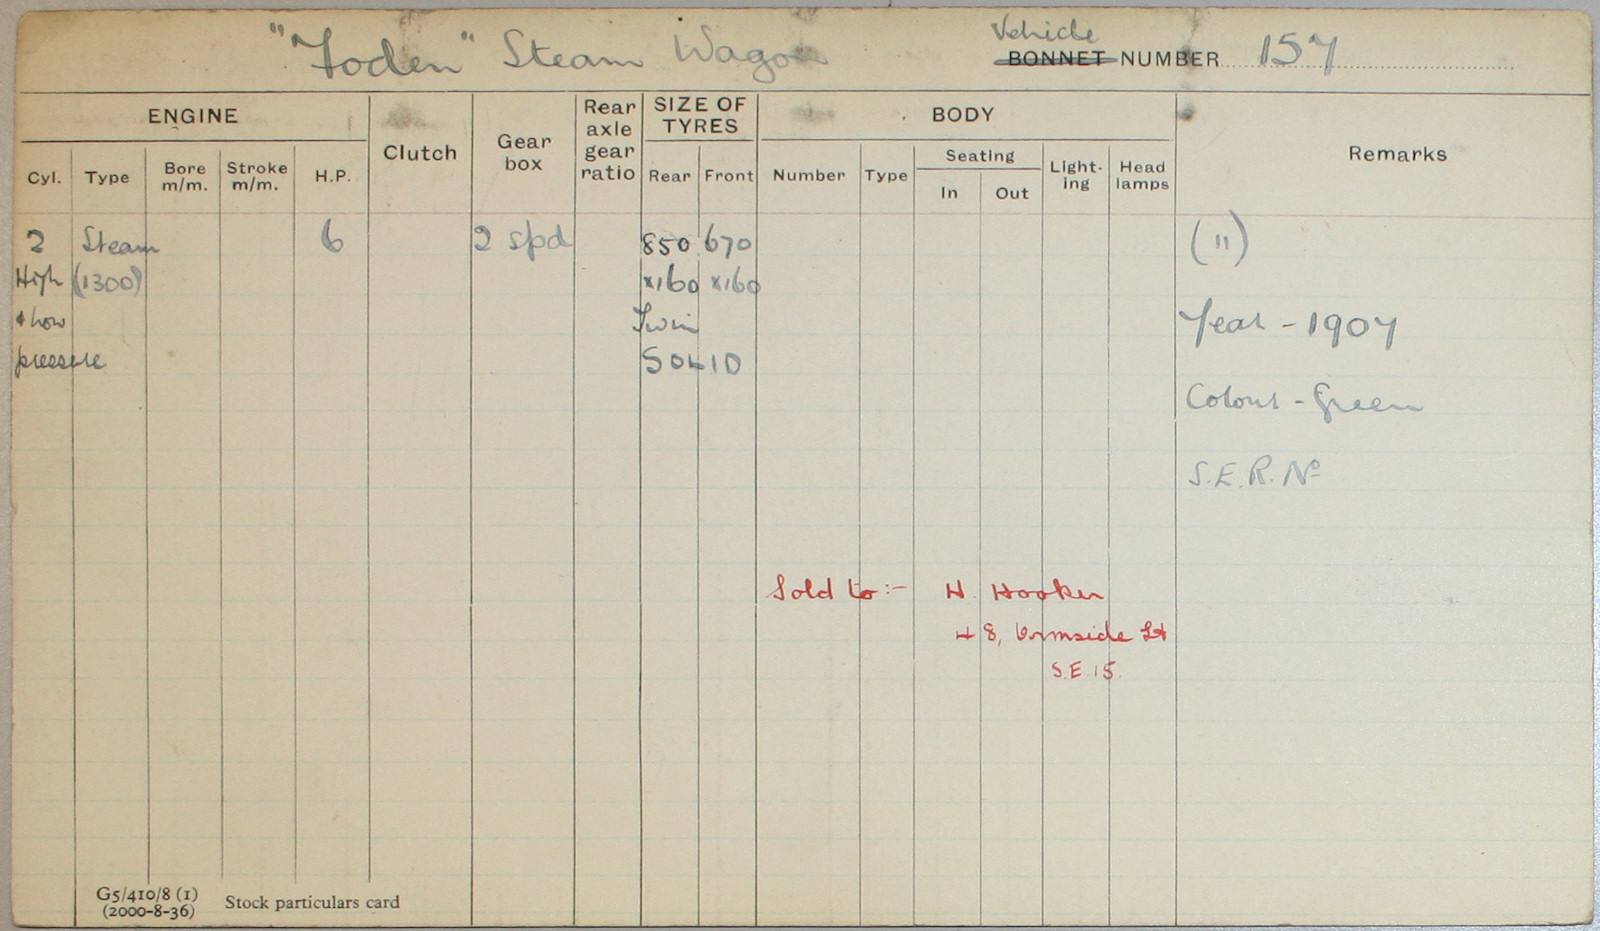 "Foden" Steam Wagon
Vehicle
BONNET NUMBER 157
ENGINE
Clutch
Gear box
Rear axle gear ratio
SIZE OF TYRES
BODY
Remarks
Cyl. Type Bore m/m. Stroke m/m. H.P.
Rear Front
Number Type
Seating
In Out
Light-ing
Head lamps
2 Steam 6 2 spd 850 670 (11)
High (1300) x160 x160
& Low Twin Year - 1907
pressure SOLID
Colour - Green
S.E.R. No
Sold to :- H. Hooker
48, Ormside St
S.E.15.
G5/410/8 (1)
(2000-8-36)
Stock particulars card